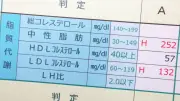 判 定 A
脂質代謝
総コレステロール mg/dl 140~199
中 性 脂 肪 mg/dl 30~149 H 252
HDLコレステロール mg/dl 40以上 57
LDLコレステロール mg/dl 60~119 H 132
LH比 2.0以下
判 定